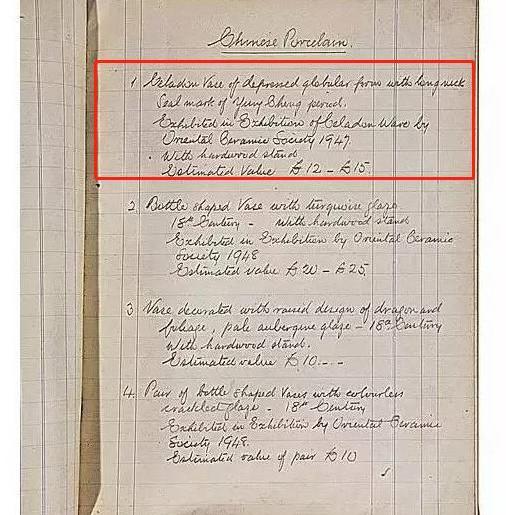 Chinese Porcelain.
1 Celadon Vase of depressed globular form with long neck
Seal mark of Yung Cheng period.
Exhibited in Exhibition of Celadon Ware by
Oriental Ceramic Society 1947.
With hardwood stand
Estimated Value £12 – £15.
2. Bottle shaped Vase with turquoise glaze
18th Century – with hardwood stand
Exhibited in Exhibition by Oriental Ceramic
Society 1948
Estimated value £20 – £25
3 Vase decorated with raised design of dragon and
foliage, pale aubergine glaze – 18th Century
With hardwood stand.
Estimated value £10.–.–
4. Pair of bottle shaped Vases with colourless
crackled glaze – 18th Century
Exhibited in Exhibition by Oriental Ceramic
Society 1948.
Estimated value of pair £10